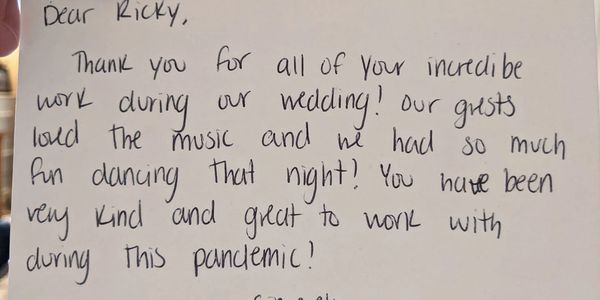 Dear Ricky,
Thank you for all of your incredibe
work during our wedding! Our guests
loved the music and we had so much
fun dancing that night! You have been
very kind and great to work with
during this pandemic!